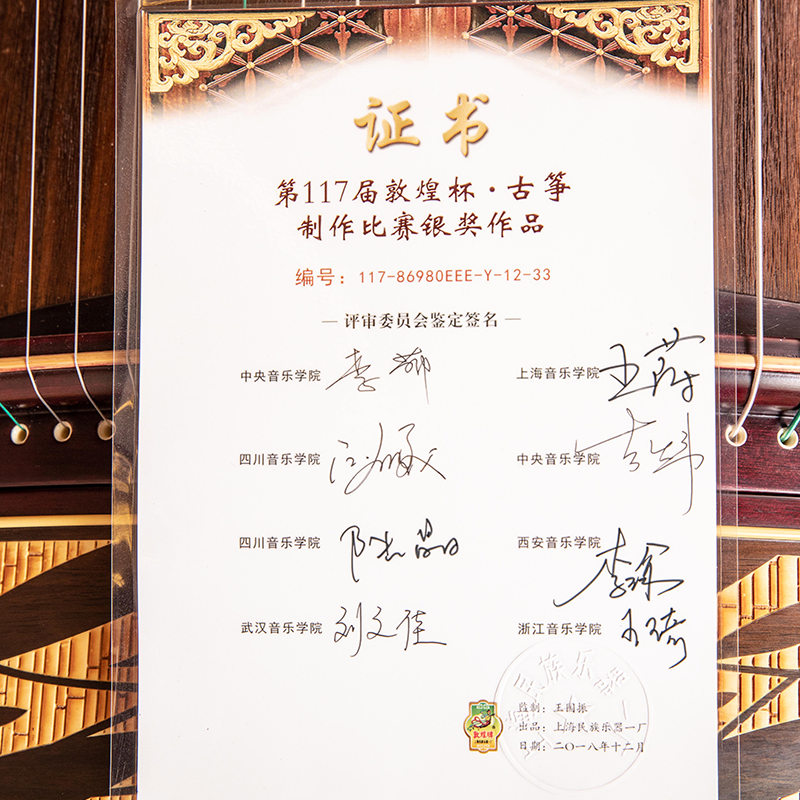 证书
第117届敦煌杯·古筝
制作比赛银奖作品
编号：117-86980EEE-Y-12-33
— 评审委员会鉴定签名 —
中央音乐学院
上海音乐学院 王蔚
四川音乐学院 江澹敏
中央音乐学院 吉炜
四川音乐学院
西安音乐学院
武汉音乐学院 刘文佳
浙江音乐学院
监制：王国振
出品：上海民族乐器一厂
日期：二〇一八年十二月
敦煌牌